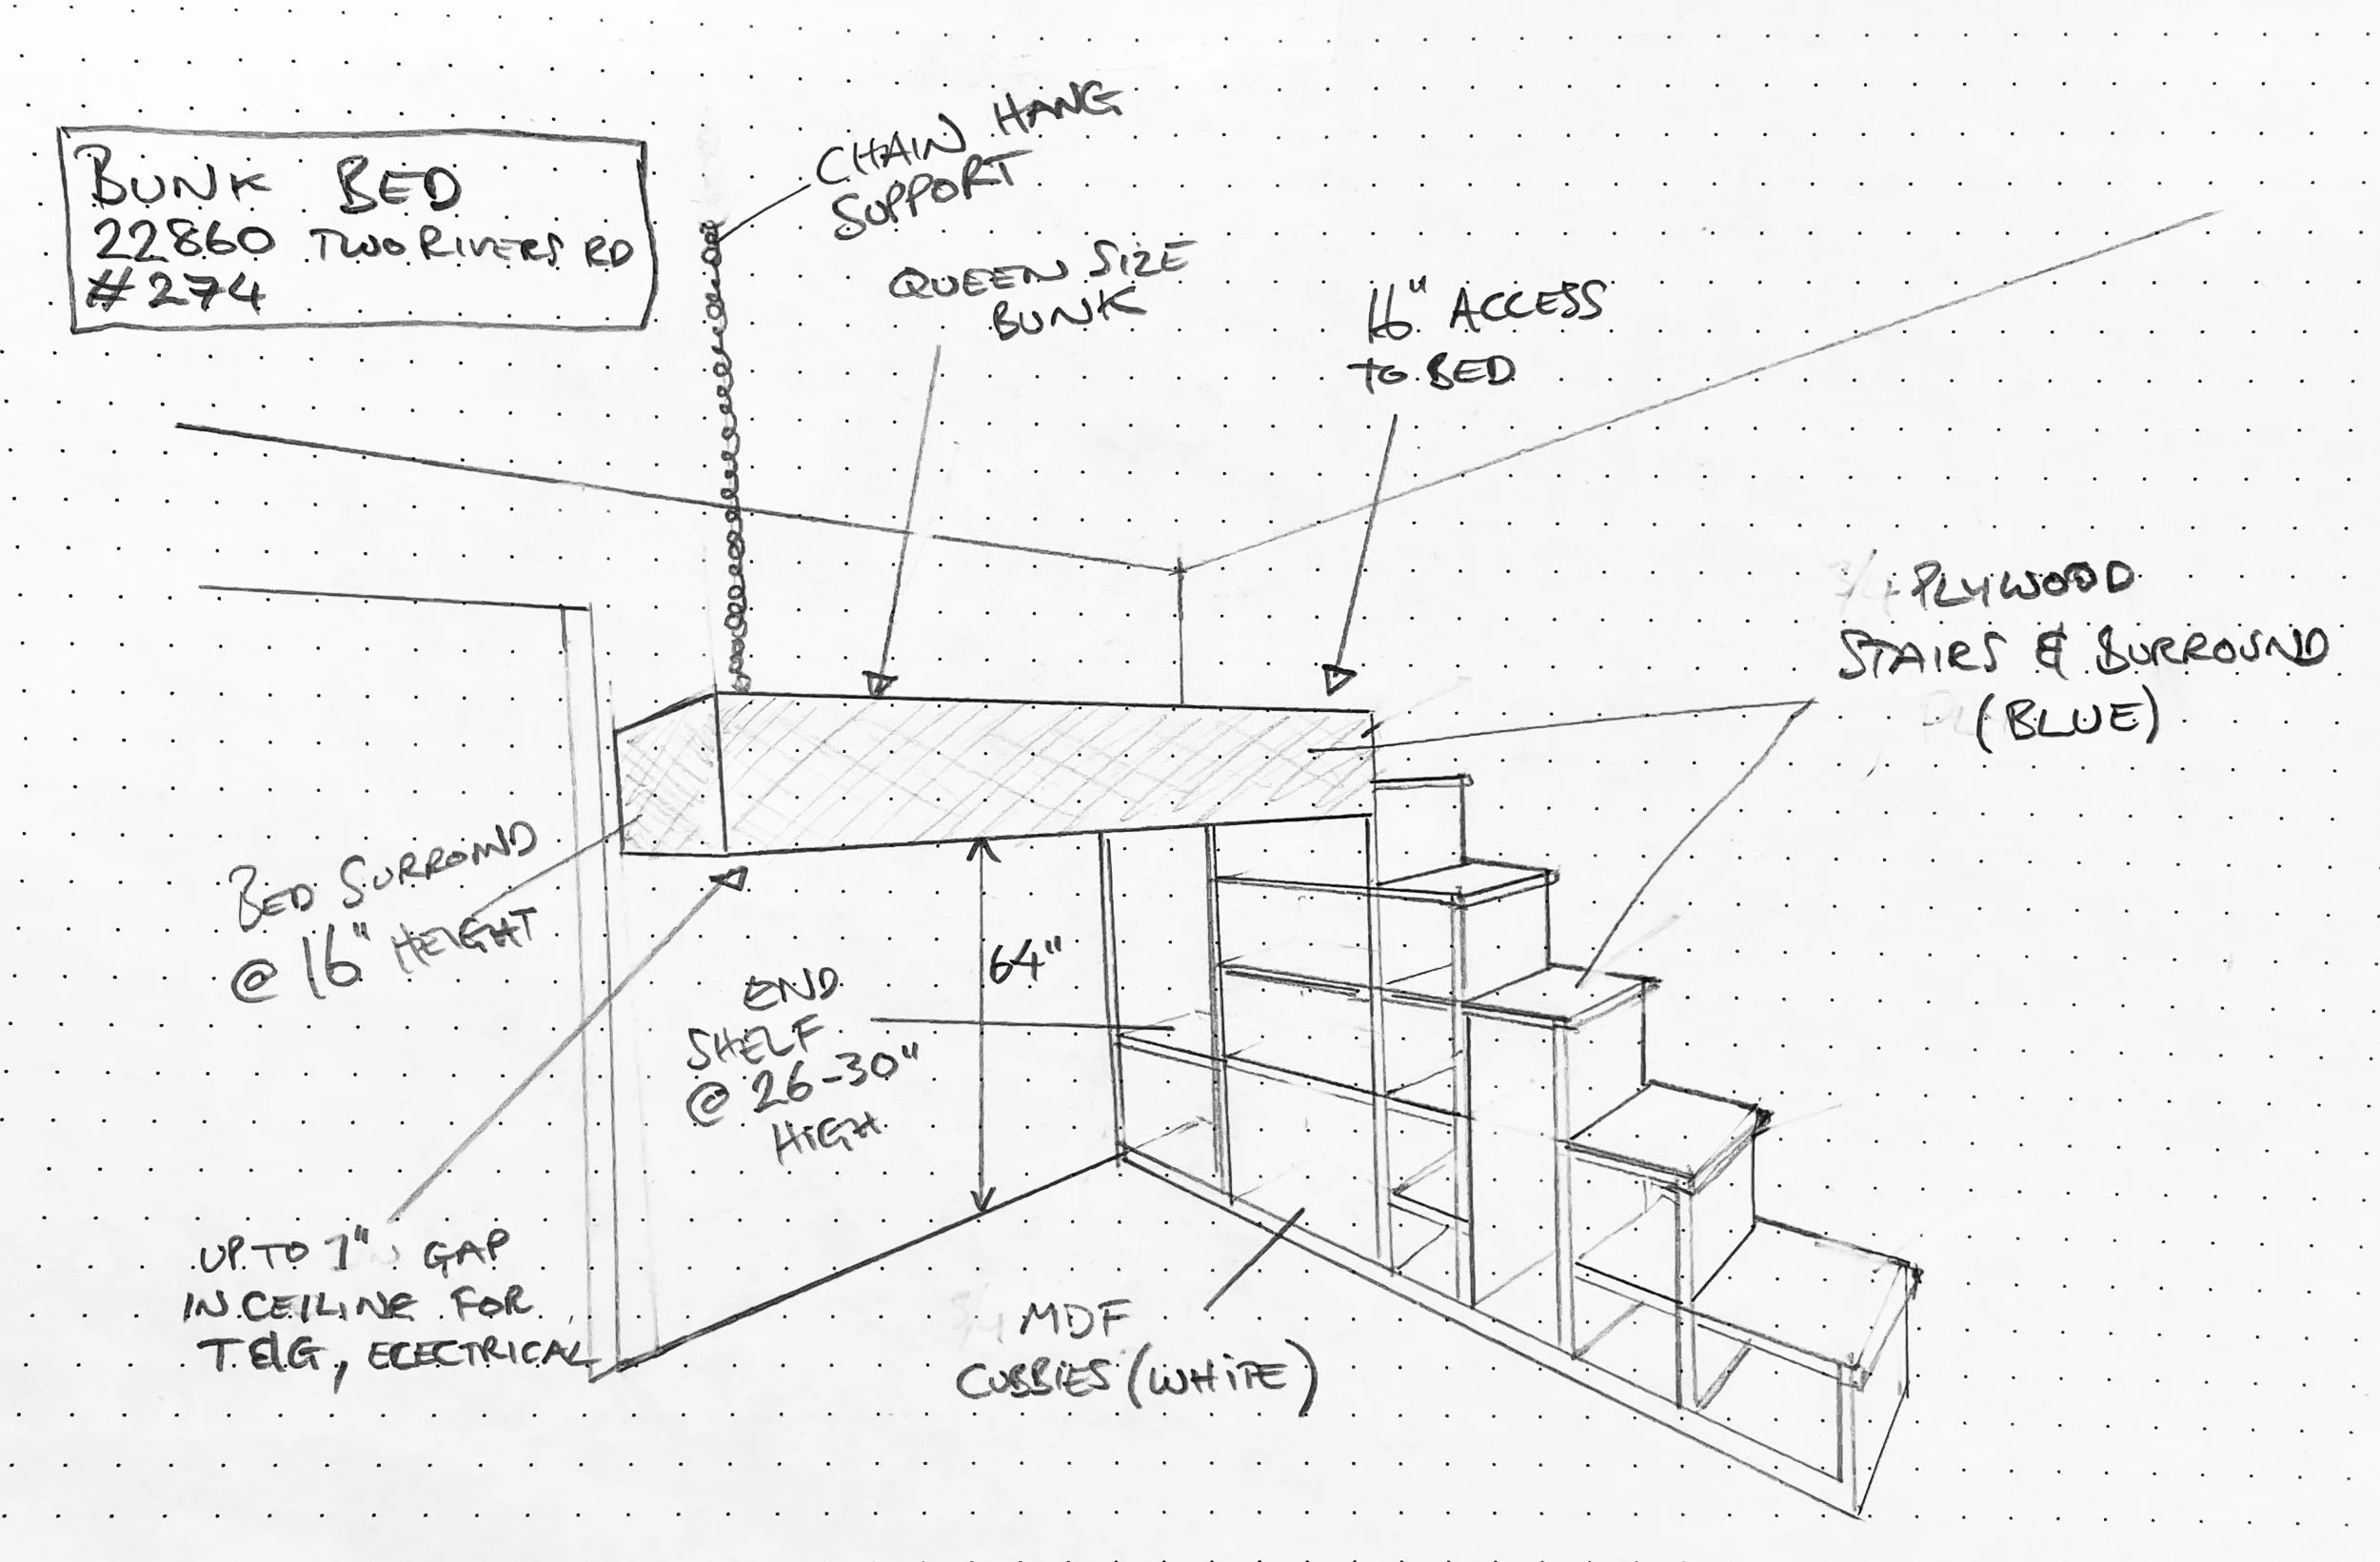 BUNK BED
22860 TWO RIVERS RD
#274
CHAIN HANG
SUPPORT
QUEEN SIZE
BUNK
16" ACCESS
TO BED
3/4 PLYWOOD
STAIRS & SURROUND
(BLUE)
BED SURROUND
@ 16" HEIGHT
64"
END
SHELF
@ 26-30"
HIGH
UP TO 1" GAP
IN CEILING FOR
T&G, ELECTRICAL
3/4 MDF
CUBBIES (WHITE)